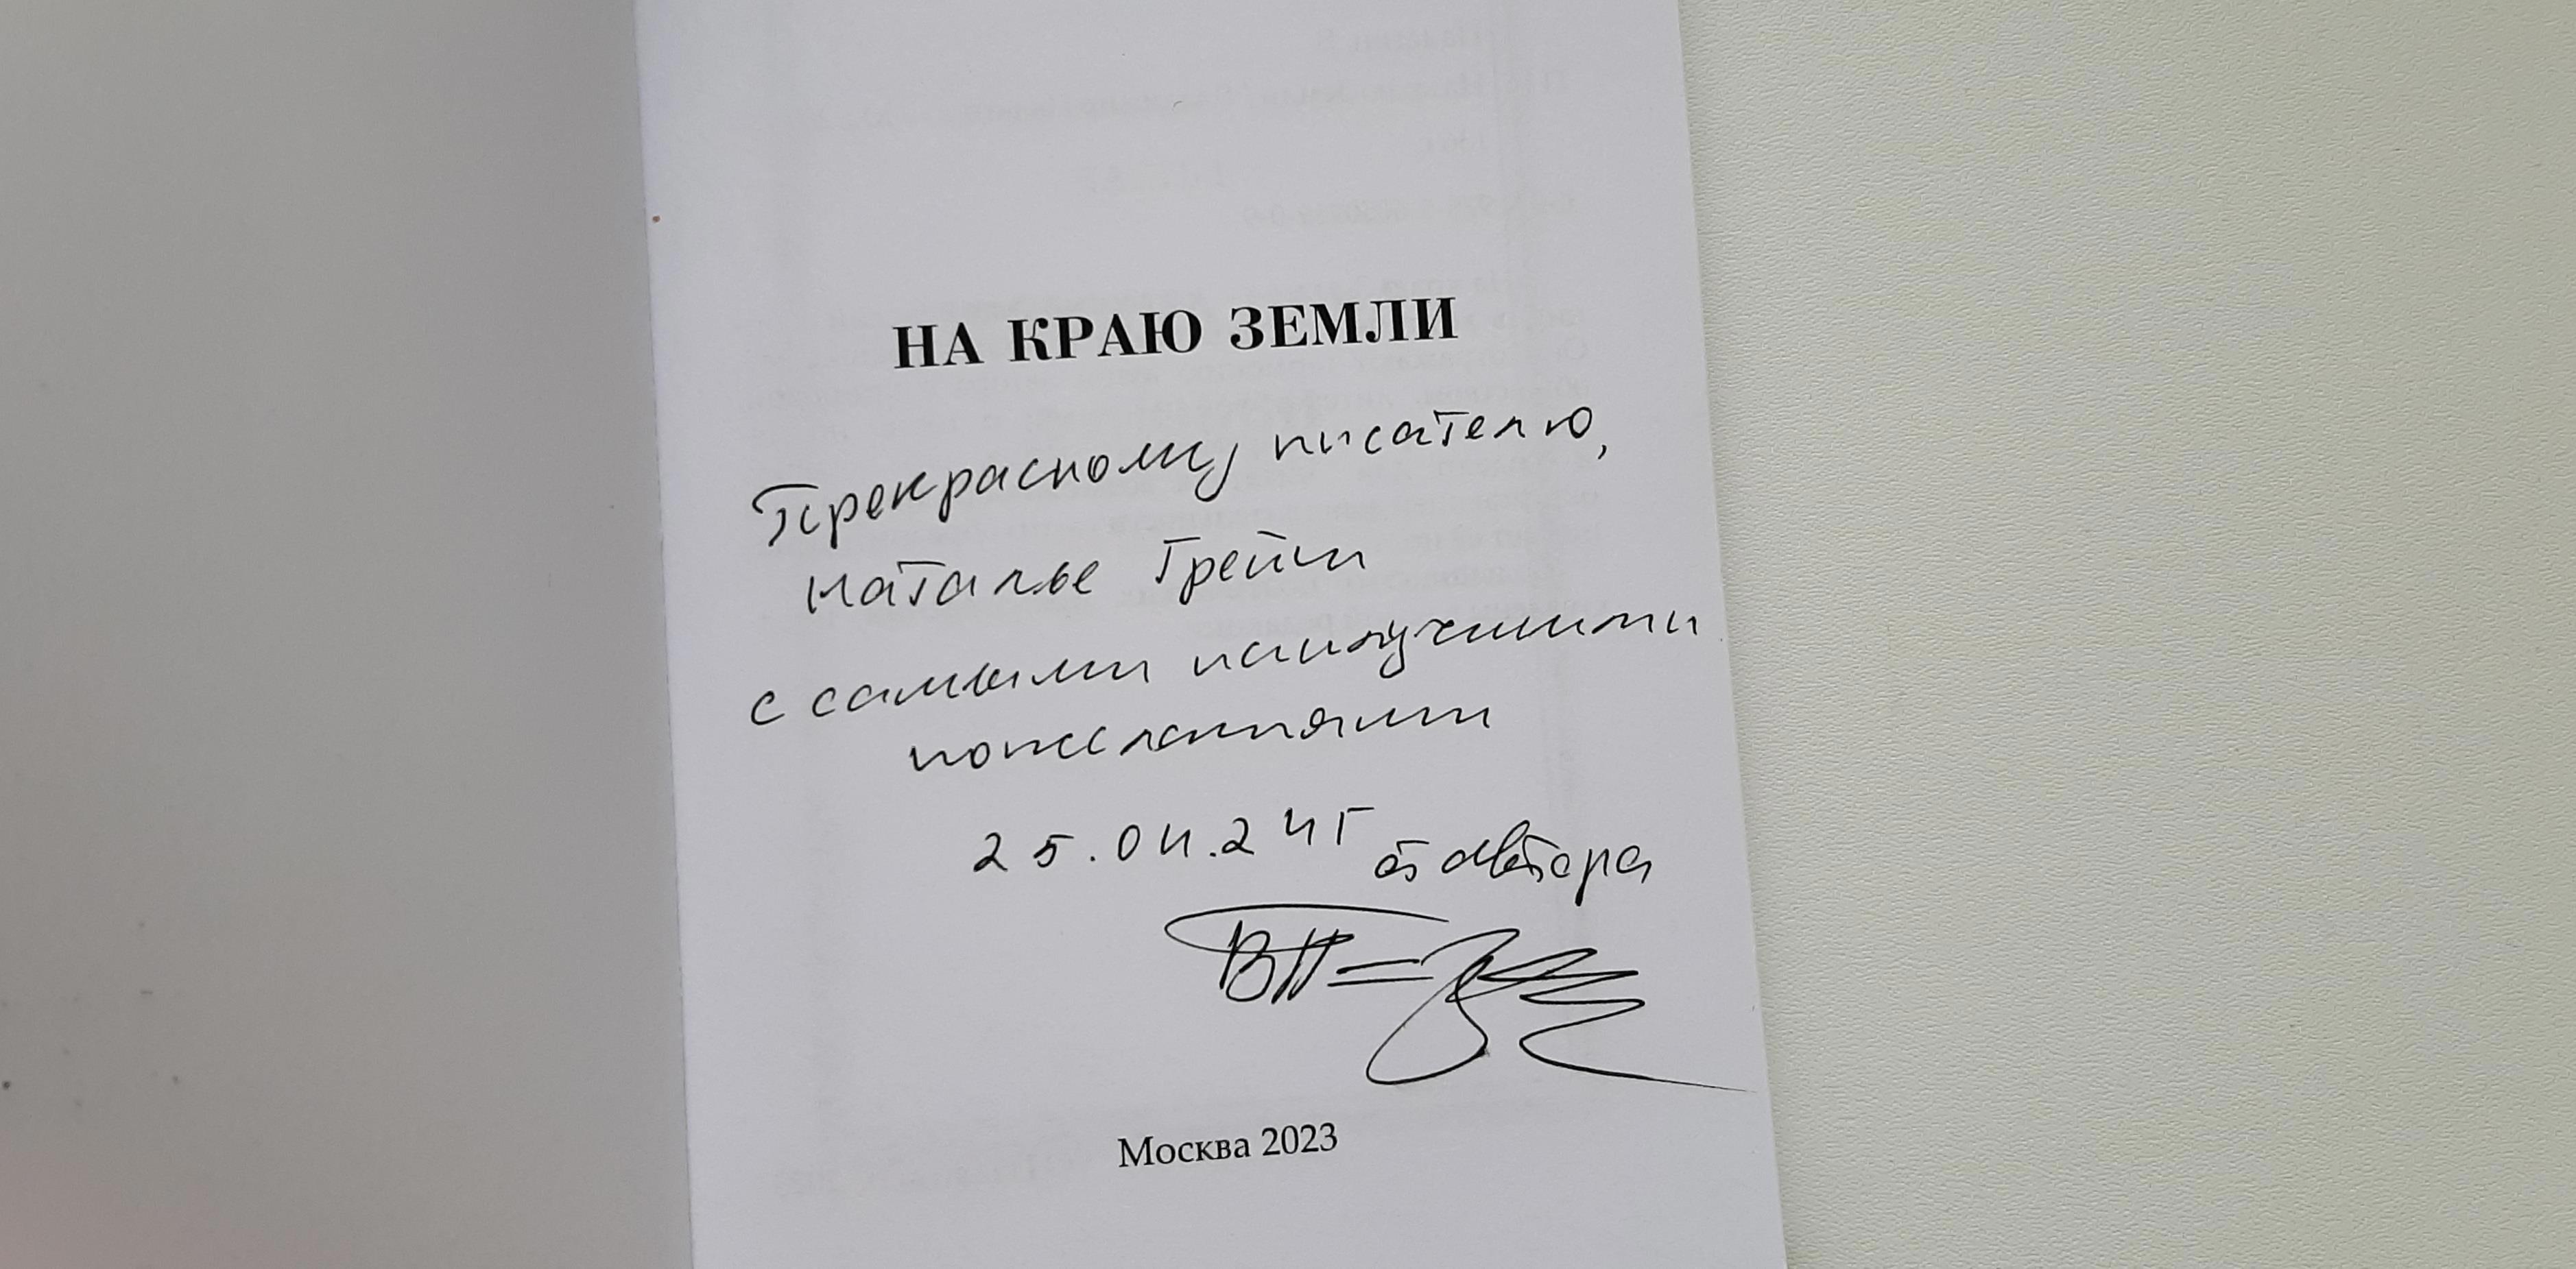 НА КРАЮ ЗЕМЛИ
Прекрасному писателю,
Наталье Грейш
с самыми наилучшими
пожеланиями
25.04.24г
от автора
Москва 2023